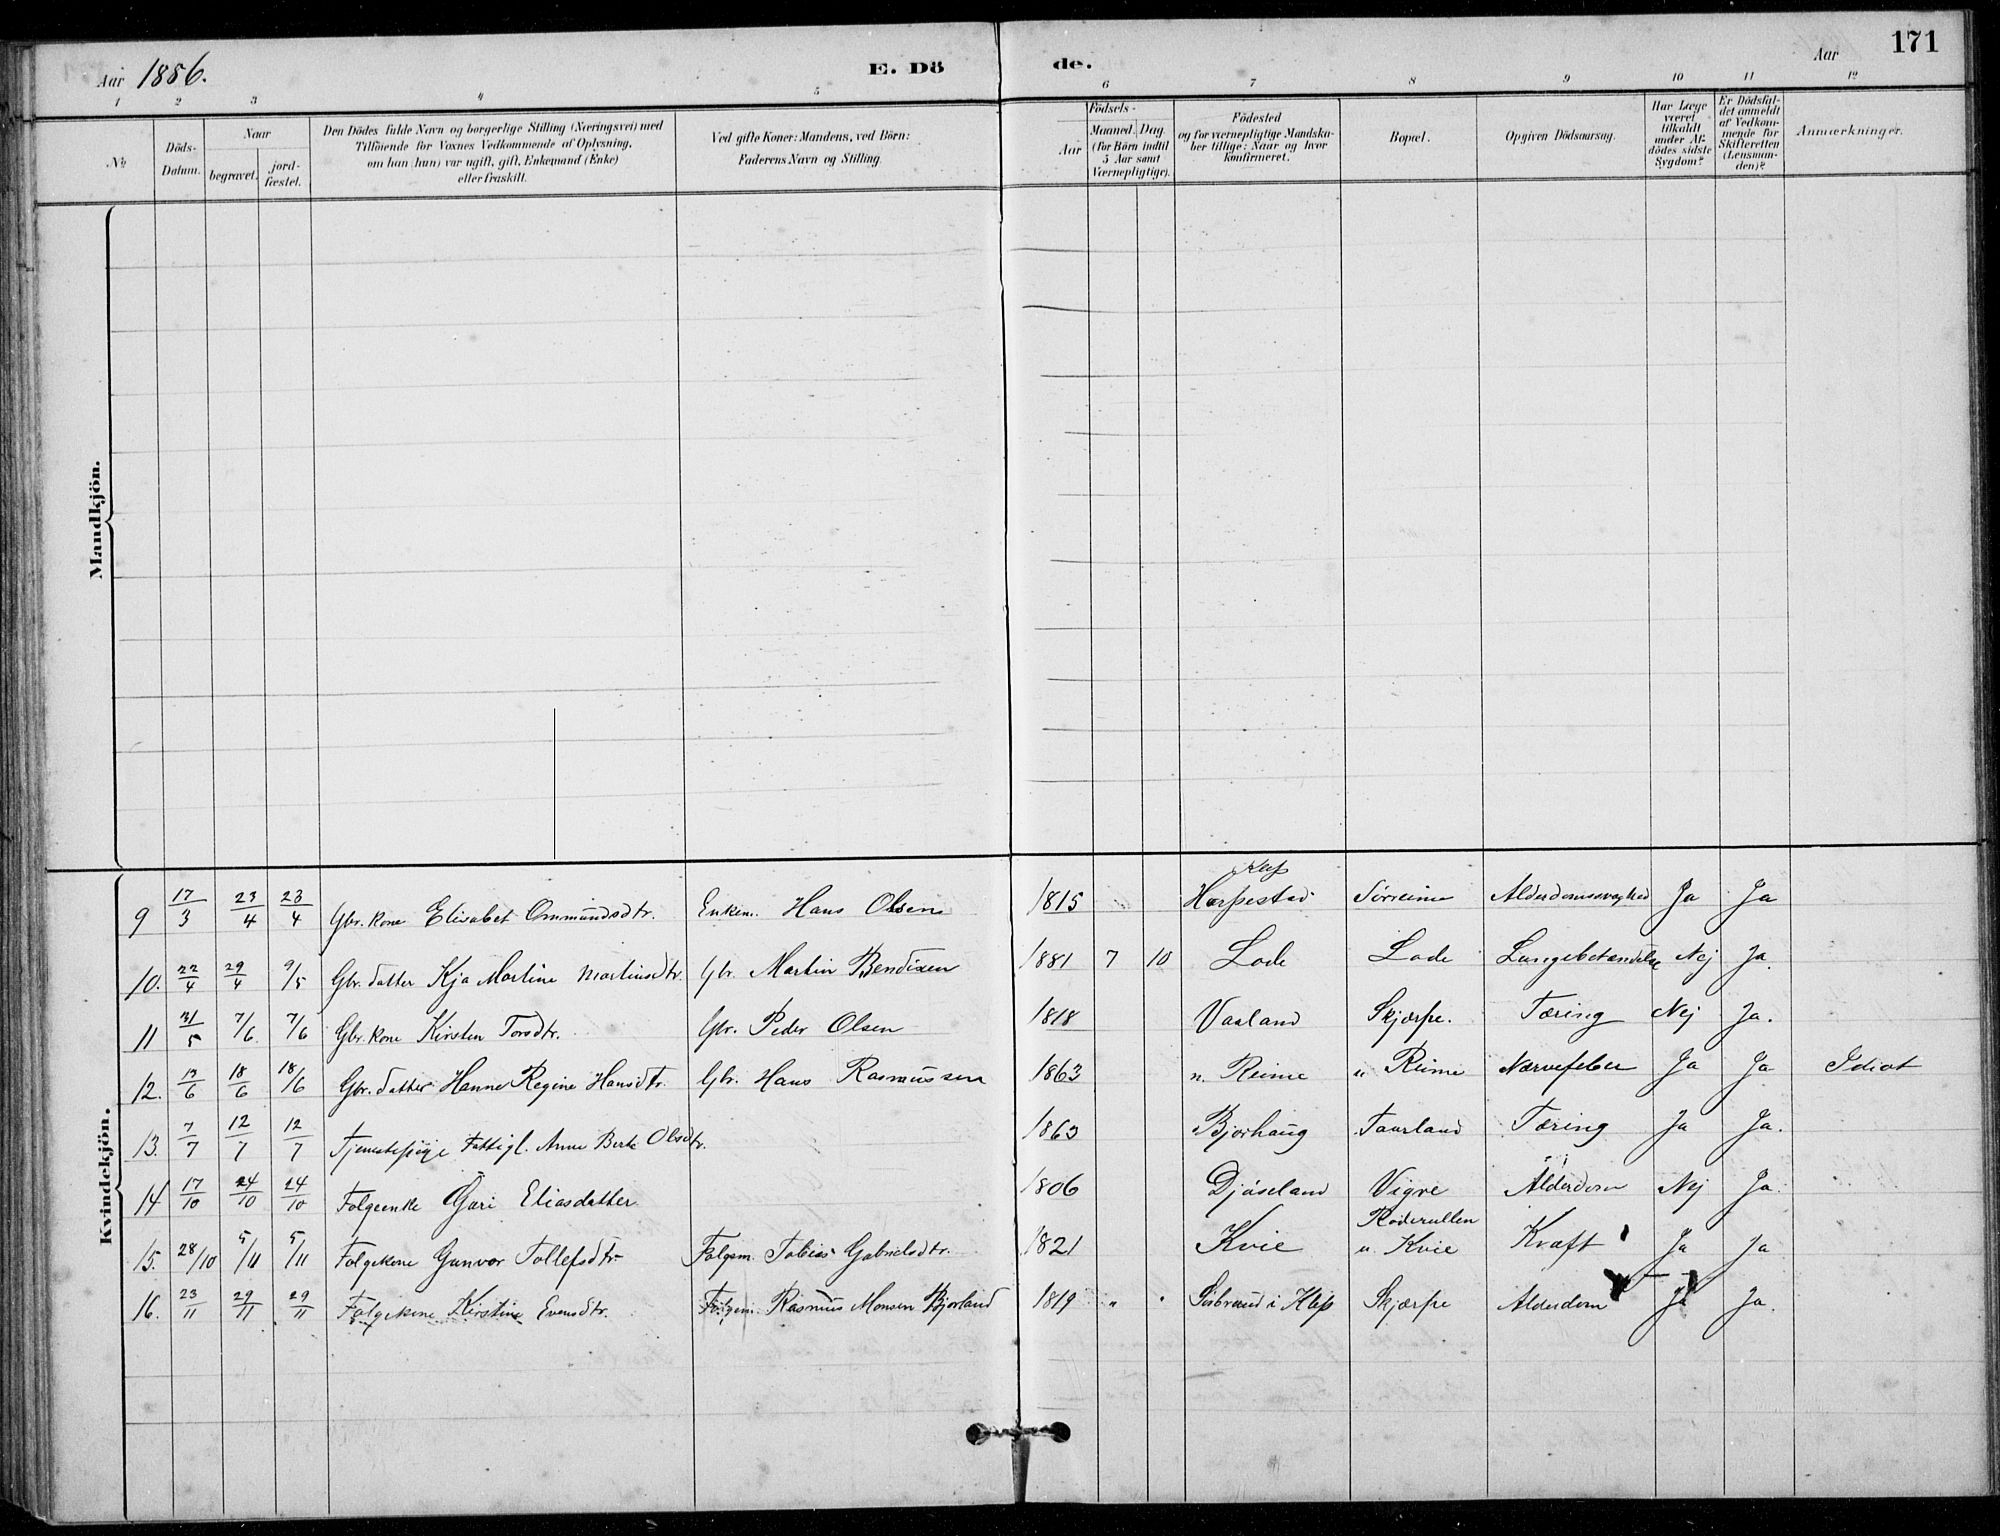 Aar 1886. E. Dö de. Aar 171
1 2 3 4 5 6 7 8 9 10 11 12
№ Döds-Datum. Naar begravet. jord-fæstet. Den Dödes fulde Navn og borgerlige Stilling (Næringsvei) med Tilföiende for Voxnes Vedkommende af Oplysning, om han (hun) var ugift, gift, Enkemand (Enke) eller fraskilt. Ved gifte Koner: Mandens, ved Börn: Faderens Navn og Stilling. Födsels- Aar Maaned. Dag. (for Börn indtil 5 Aar samt Værnepligtige). Födested og for værnepligtige Mandskaber tillige: Naar og hvor konfirmeret. Bopæl. Opgiven Dödsaarsag. Har Læge været tilkaldt under Afdödes sidste Sygdom? Er Dödsfaldet anmeldt af Vedkommende for Skifteretten (Lensmanden)? Anmærkninger.
Mandkjön.
Kvindekjön.
9 17/3 23/4 23/4 Gbr. kone Elisabet Ommundsdtr. Enkem. Hans Olsen 1815 Klep Hæpestad Sörreime Alderdomssvaghed Ja Ja
10. 22/4 29/4 9/5 Gbr. datter Kja Martine Martinsdtr. Gbr. Martin Bendixen 1881 7 10 Lode Lode Lungebetændelse Nej Ja.
11 31/5 7/6 7/6 Gbr. kone Kirsten Torsdtr. Gbr. Peder Olsen 1818 Vaaland Skjærpe. Tæring Nej Ja.
12. 13/6 18/6 18/6 Gbr. datter Hanne Regine Hansdtr. Gbr. Hans Rasmussen 1863 n. Reime n. Reime Nervefeber Ja Ja Idiot
13. 7/7 12/7 12/7 Tjenestepige Fattigl. Anne Berte Olsdtr. 1863 Bjorhaug Taarland Tæring Ja Ja.
14 17/10 24/10 24/10 Folgeenke Guri Eliasdatter 1806 Djøseland Vigre Alderdom Nej Ja.
15. 28/10 5/11 5/11 Folgekone Gunvor Tollefsdtr. Folgem. Tobias Gabrielsdtr. 1821 Kvie u. Kvie Kræft Ja Ja
16. 23/11 29/11 29/11 Folgekone Kirstine Evensdtr. Folgem. Rasmus Monsen Bjorland 1819 " " i Klep Skjærpe Alderdom Ja Ja.